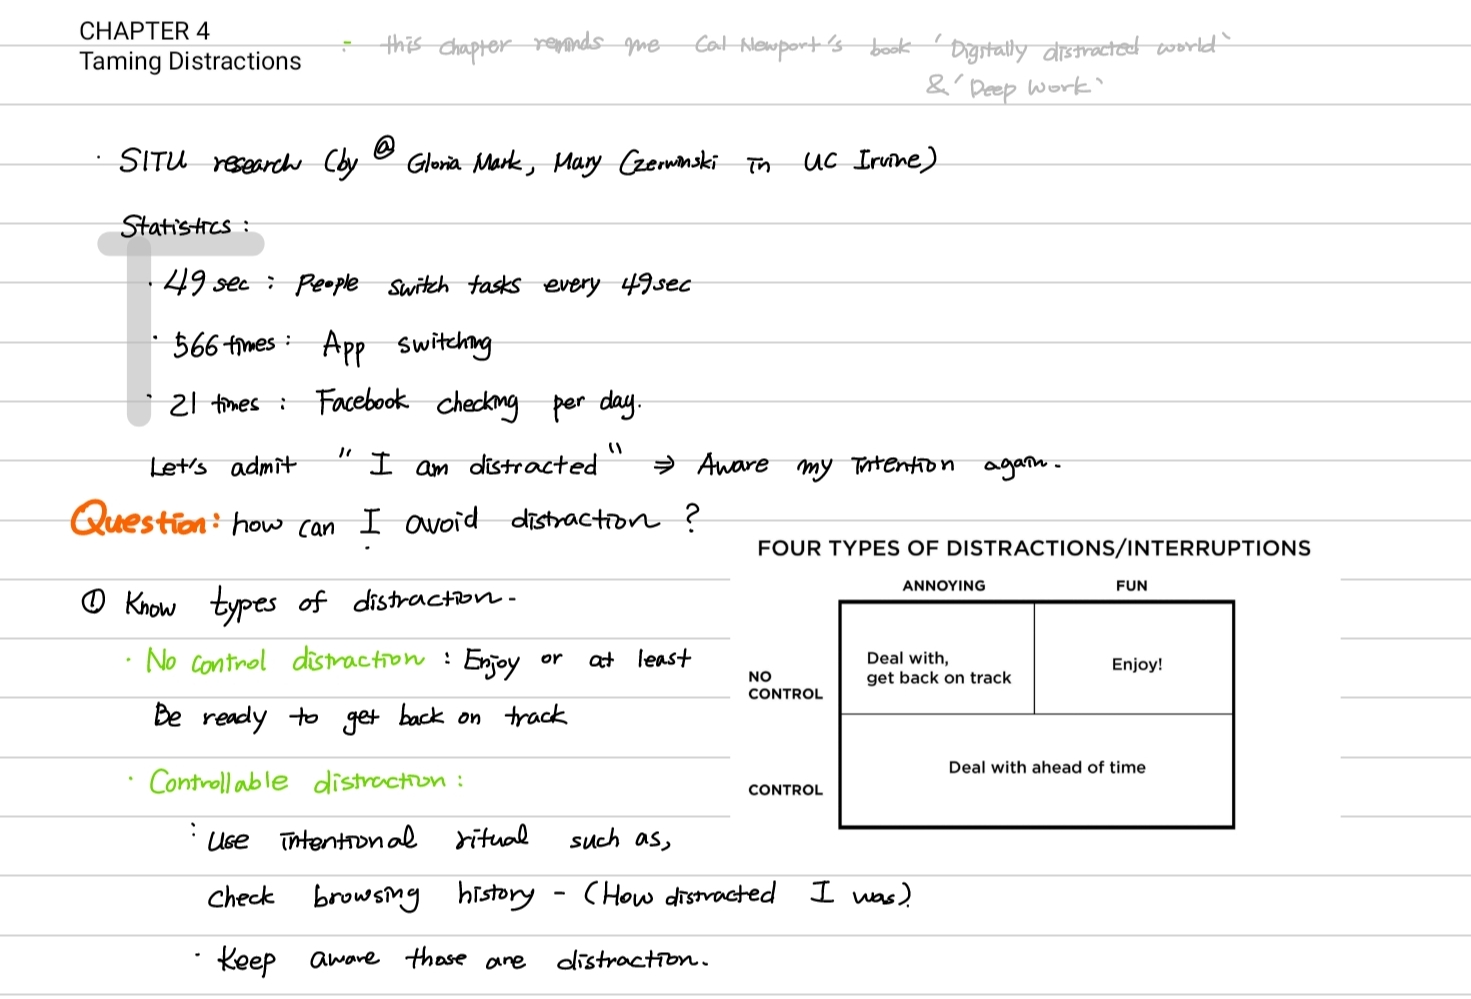 CHAPTER 4
Taming Distractions
: this chapter reminds me Cal Newport's book 'Digitally distracted world'
& 'Deep Work'
· SITU research (by @ Gloria Mark, Mary Czerwinski in UC Irvine)
Statistics :
· 49 sec : People switch tasks every 49sec
· 566 times : App switching
· 21 times : Facebook checking per day.
Let's admit " I am distracted " ⇒ Aware my intention again.
Question: how can I avoid distraction ?
① Know types of distraction.
· No control distraction : Enjoy or at least
Be ready to get back on track
· Controllable distraction :
: Use intentional ritual such as,
check browsing history - (How distracted I was)
· Keep aware those are distraction.
FOUR TYPES OF DISTRACTIONS/INTERRUPTIONS
ANNOYING FUN
NO CONTROL
Deal with,
get back on track
Enjoy!
CONTROL
Deal with ahead of time